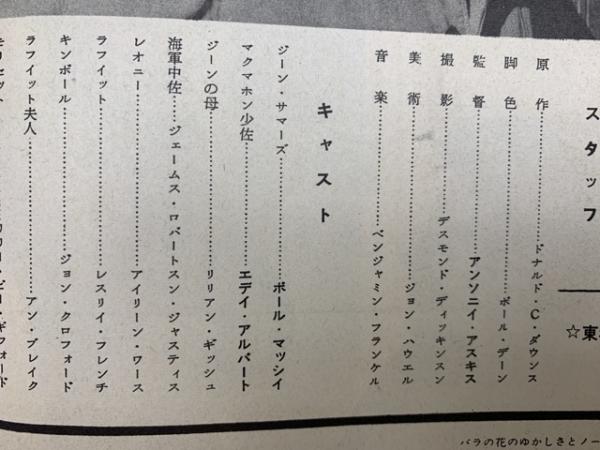 スタッフ
原作……ドナルド・C・ダウンス
脚色……ポール・デーン
監督……アンソニイ・アスキス
撮影……デスモンド・ディッキンスン
美術……ジョン・ハウエル
音楽……ベンジャミン・フランケル
キャスト
ジーン・サマーズ……ポール・マッシイ
マクマホン少佐……エデイ・アルバート
ジーンの母……リリアン・ギッシュ
海軍中佐……ジェームス・ロバートスン・ジャスティス
レオニー……アイリーン・ワース
ラフイット……レスリイ・フレンチ
キンボール……ジョン・クロフォード
ラフイット夫人……アン・ブレイク
☆東
バラの花のゆかしさとノー